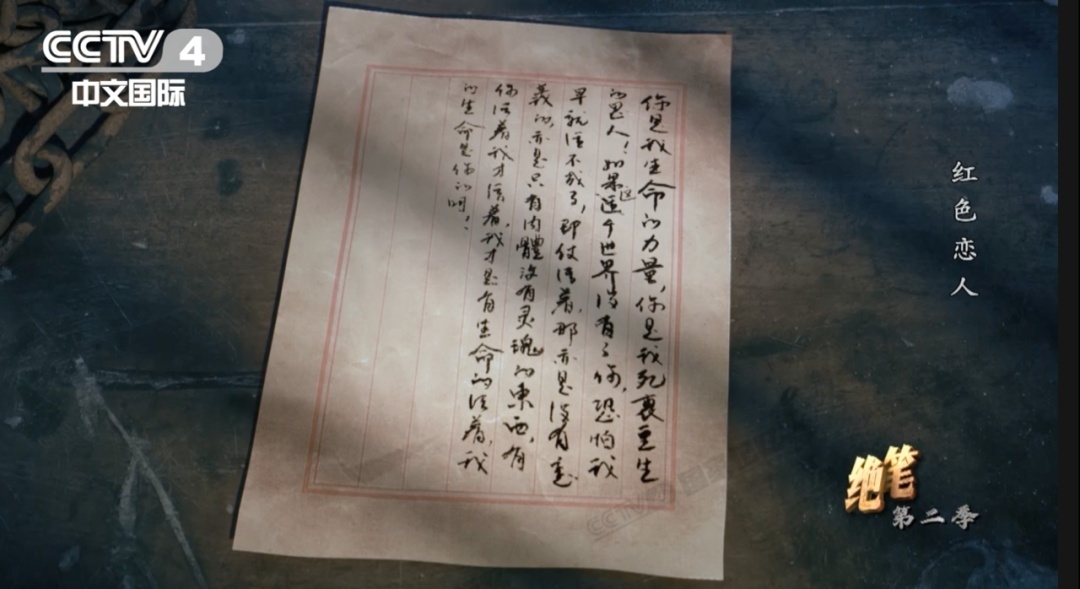 CCTV 4
中文国际
你是我生命的力量，你是我死裏重生
的恩人！如果这个世界没有了你，恐怕我
早就活不成了，即使活着，那亦是没有意
義的，亦是只有肉體没有灵魂的東西，有
你活着我才活着，我才是有生命的活着，我
的生命是你的呀！
红色恋人
绝笔
第二季
CCTV